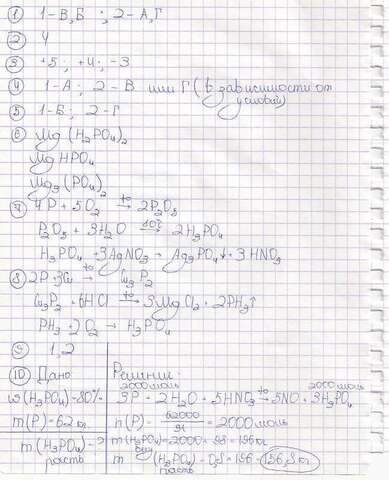 ① 1-В,Б ; 2-А,Г
② 4
③ +5; +4; -3
④ 1-А; 2-В или Г (в зависимости от условий)
⑤ 1-Б; 2-Г
⑥ Mg(H₂PO₄)₂
MgHPO₄
Mg₃(PO₄)₂
⑦ 4P + 5O₂ →t° 2P₂O₅
P₂O₅ + 3H₂O → 2H₃PO₄
H₃PO₄ + 3AgNO₃ → Ag₃PO₄↓ + 3HNO₃
⑧ 2P 3Cu →t° Cu₃P₂
Cu₃P₂ + 6HCl →t° 3MgCl₂ + 2PH₃↑
PH₃ + 2O₂ → H₃PO₄
⑨ 1,2
⑩ Дано
Решение:
ω(H₃PO₄)=80%
m(P)=62кг
m(H₃PO₄)-?
раств
2000моль 2000моль
3P + 2H₂O + 5HNO₃ →t° 5NO + 3H₃PO₄
n(P) = 62000/31 = 2000моль
m(H₃PO₄)=2000 · 98 = 196кг
m (H₃PO₄)-0,8 = 156,8кг
раств